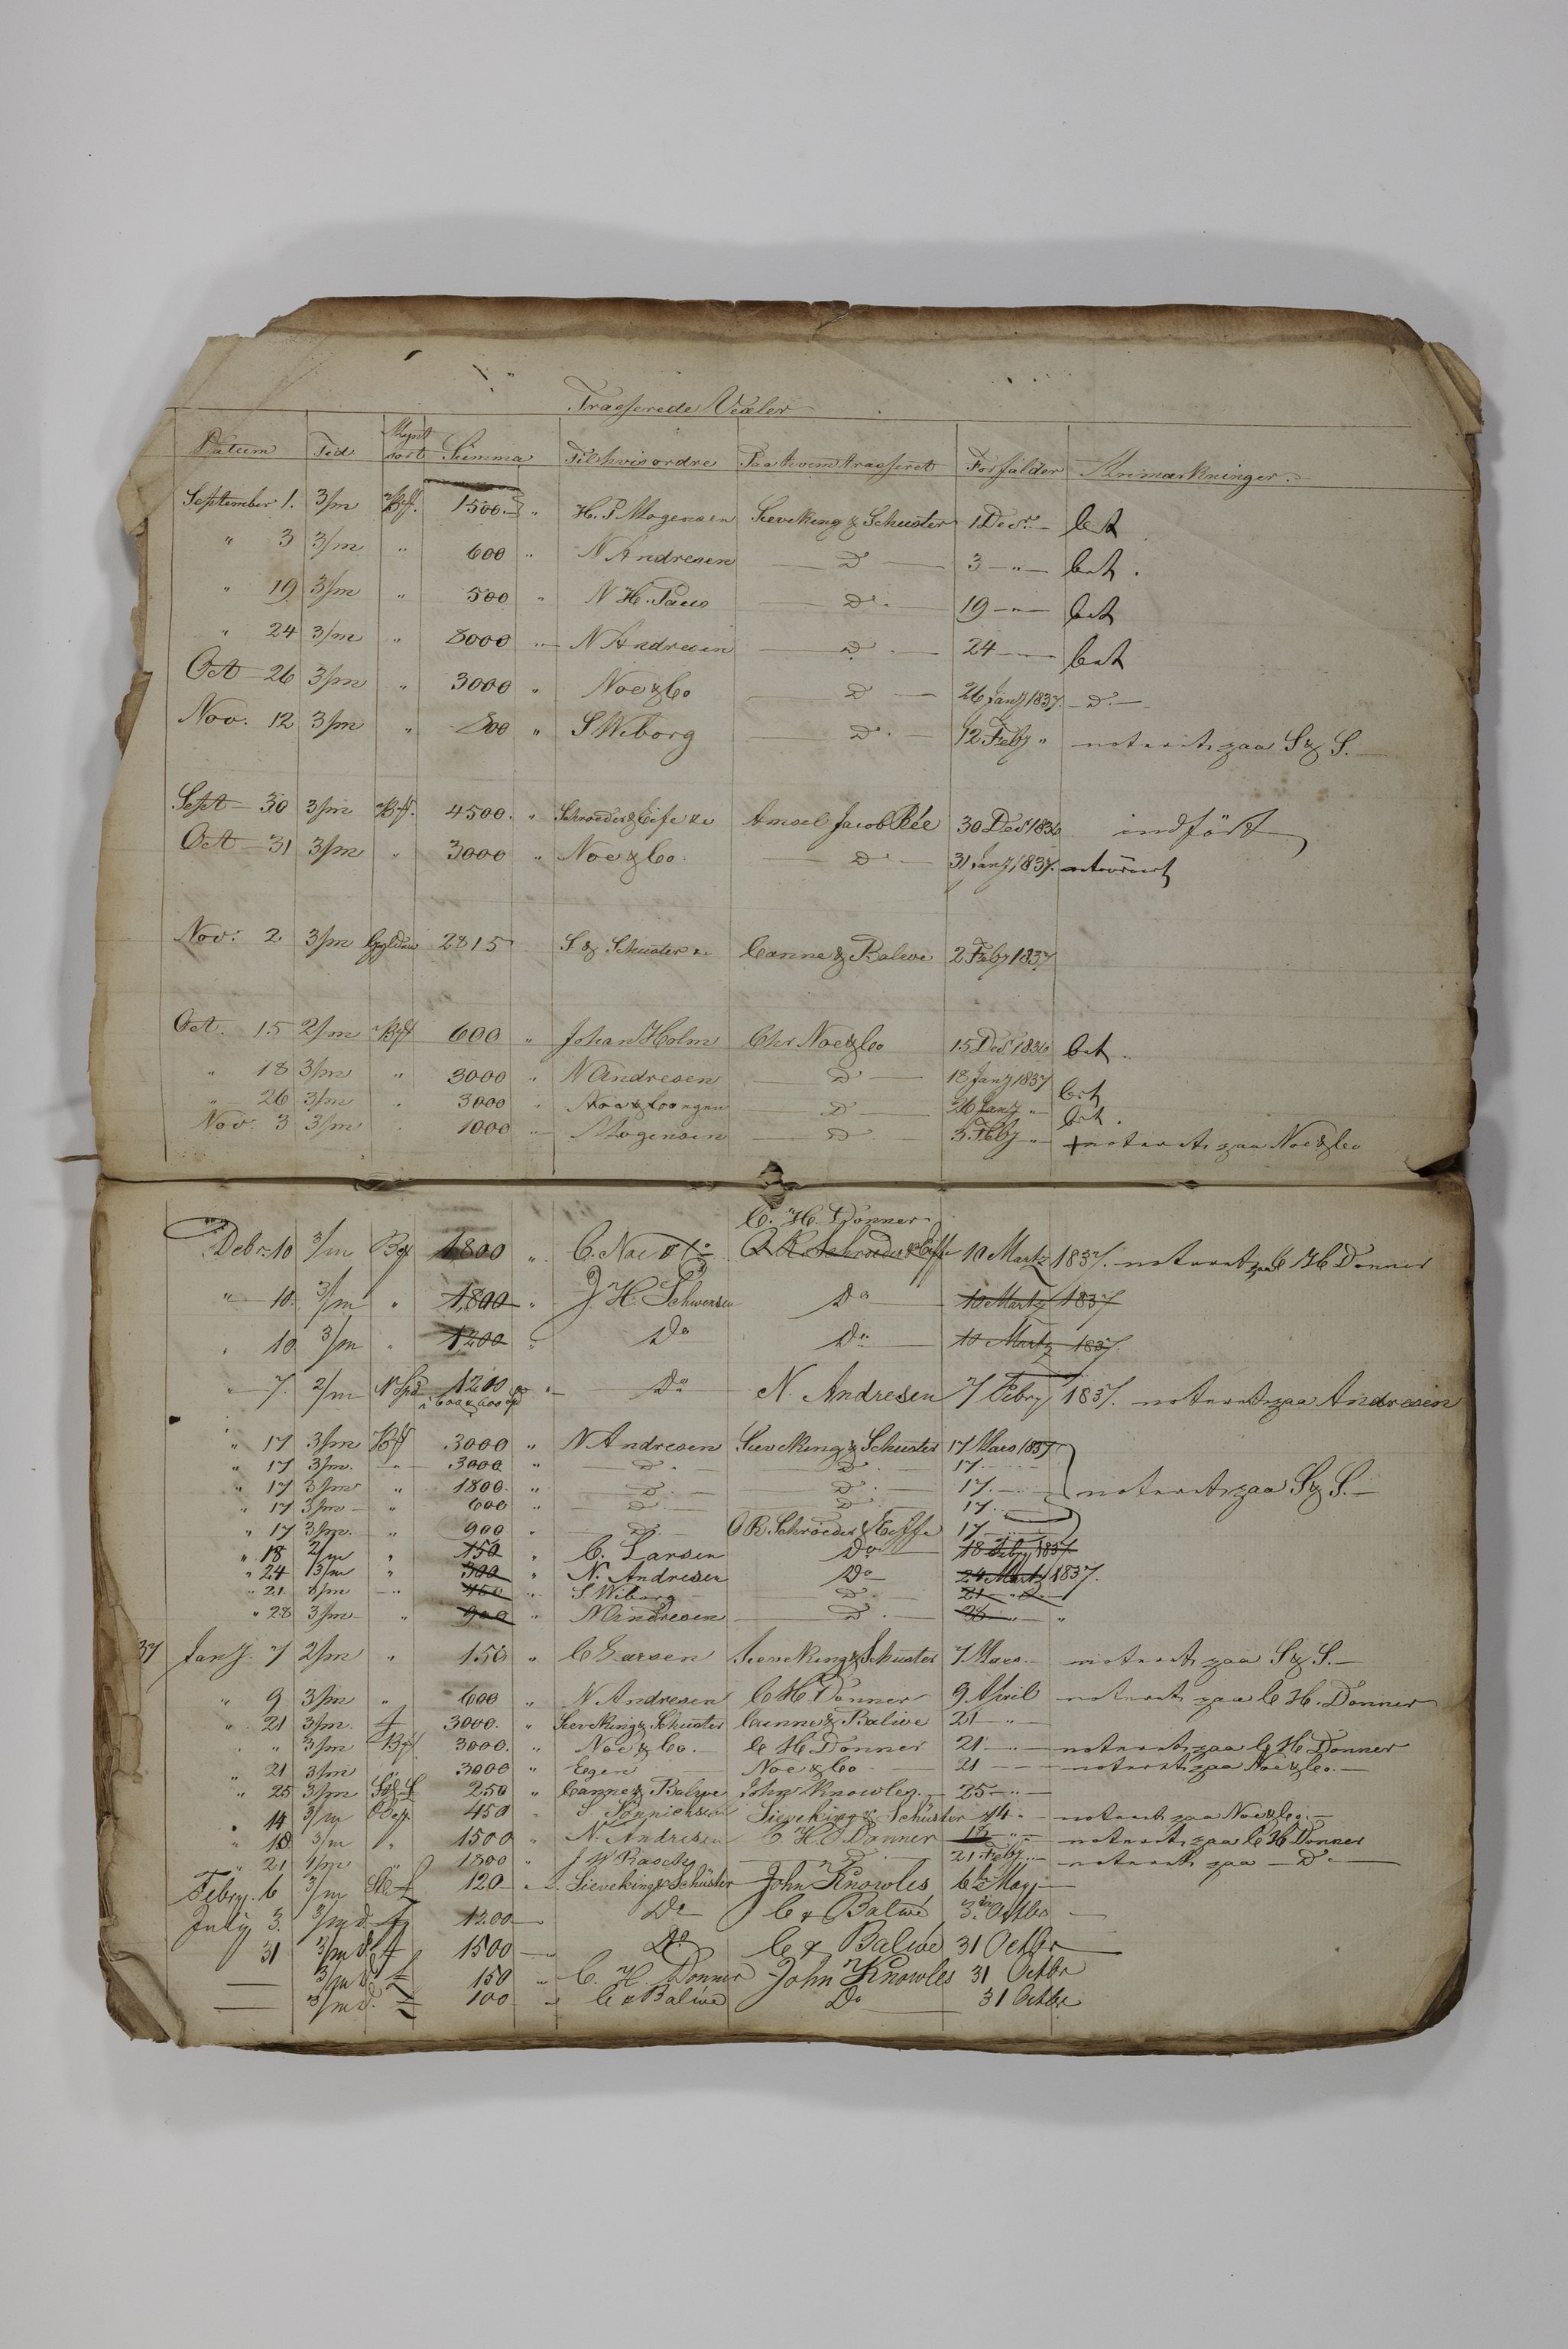 Trasserede Vexler
Datum Tid Mynt sort Summa Til hvis ordre Paa hvem trasseret Forfalder Anmærkninger
September 1. 3/m 1500. " H. P. Mogensen Sieveking & Schuster 1 Decr. — bet
" 3 3/m " 600 " N Andresen — Do — 3 — " — bet.
" 19 3/m " 500 " N H. Paus — Do. — 19 — " — bet
" 24 3/m " 8000 " N Andresen — Do. — 24 — bet
Oct 26 3/m " 3000 " Noe & Co — Do — 26 Jany 1837. — Do. —
Nov. 12 3/m " 800 " S Wiborg — Do. — 12 Feby " noteret paa S & S. —
Sept 30 3/m 4500. " Schroeder & Eiffe Amsel Jacob Rée 30 Decr 1836 indfört
Oct 31 3/m " 3000 " Noe & Co. — Do — 31 Jany 1837.
Nov. 2 3/m Gylden 2815 S & Schuster Canne & Balwe 2 Feby 1837
Oct. 15 2/m 600 " Johan Holm Chr Noe & Co 15 Decr 1836 bet.
" 18 3/m " 3000 " N Andresen — Do — 18 Jany 1837 bet
" 26 3/m " 3000 " — Do — 26 Jany " bet.
Nov. 3 3/m " 1000 " Mogensen — Do — 3. Feby " noteret paa Noe & Co
C. H. Donner
Debr 10 3/m 1800 " C. Noe & Co O. R. Schroeder & Eiffe 10 Martz 1837. noteret paa C H Donner
" 10. 3/m " 1,800 " J. H. Schwensen Do 10 Martz 1837
" 10 3/m " 1200 " Do Do 10 Martz 1837.
" 7. 2/m 1200 " Do N. Andresen 7 Febry 1837. noteret paa Andresen
a 600 & 600
" 17 3/m 3000 " N Andresen Sieveking & Schuster 17 Mars 1837
" 17 3/m. " 3000 " — Do. — Do. — 17.
" 17 3/m " 1800. " — Do. — Do. — 17. noteret paa S & S. —
" 17 3/m " 600 " — Do. — Do. — 17.
" 17 3/m. " 900 " — Do. — O R. Schröeder & Eiffe 17
" 18 2/m " 150 " C. Larsen Do 18 Febry 1837
" 24 3/m " 300 " N. Andresen Do 24 Martz 1837.
" 21 3/m " 450 " S Wiborg — Do. — 21
" 28 3/m " 900 " N Andresen — Do. — 28 " "
37 Jany. 7 2/m " 150 " C Larsen Sieveking & Schuster 7 Mars. — noteret paa S & S. —
" 9 3/m " 600 " N Andresen C H. Donner 9 April noteret paa C H. Donner
" 21 3/m. £ 3000. " Sieveking & Schuster Canne & Balwe 21 — " —
" " 3/m 3000. " Noe & Co. — C H Donner 21 — noteret paa C H Donner
" 21 3/m " 3000 " Egen Noe & Co 21 — noteret paa Noe & Co. —
" 25 3/m 250 " Canne & Balwe John Knowles. 25 — " —
" 14 3/m 450 " S Sönnichsen Sieveking & Schüster 14 " — noteret paa Noe & Co. —
" 18 3/m " 1500 " N. Andresen C. H. Donner 18 " — noteret paa C H Donner
" 21 1/m " 1800 " J W Rasch — Do. — 21. Feby. — noteret paa — Do. —
Febry. 6 3/m 120 " Sieveking & Schüster John Knowles 6te May —
July 3. 3/md. £ 1200 — Do C & Balwé 3. Octbr —
31 3/md. £ 1500 — Do. C & Balwé 31 Octbr
— 3/md. £ 150 " C. H. Donner John Knowles 31 Octbr
— 3/md. £ 100 " C & Balwé Do 31 Octbr